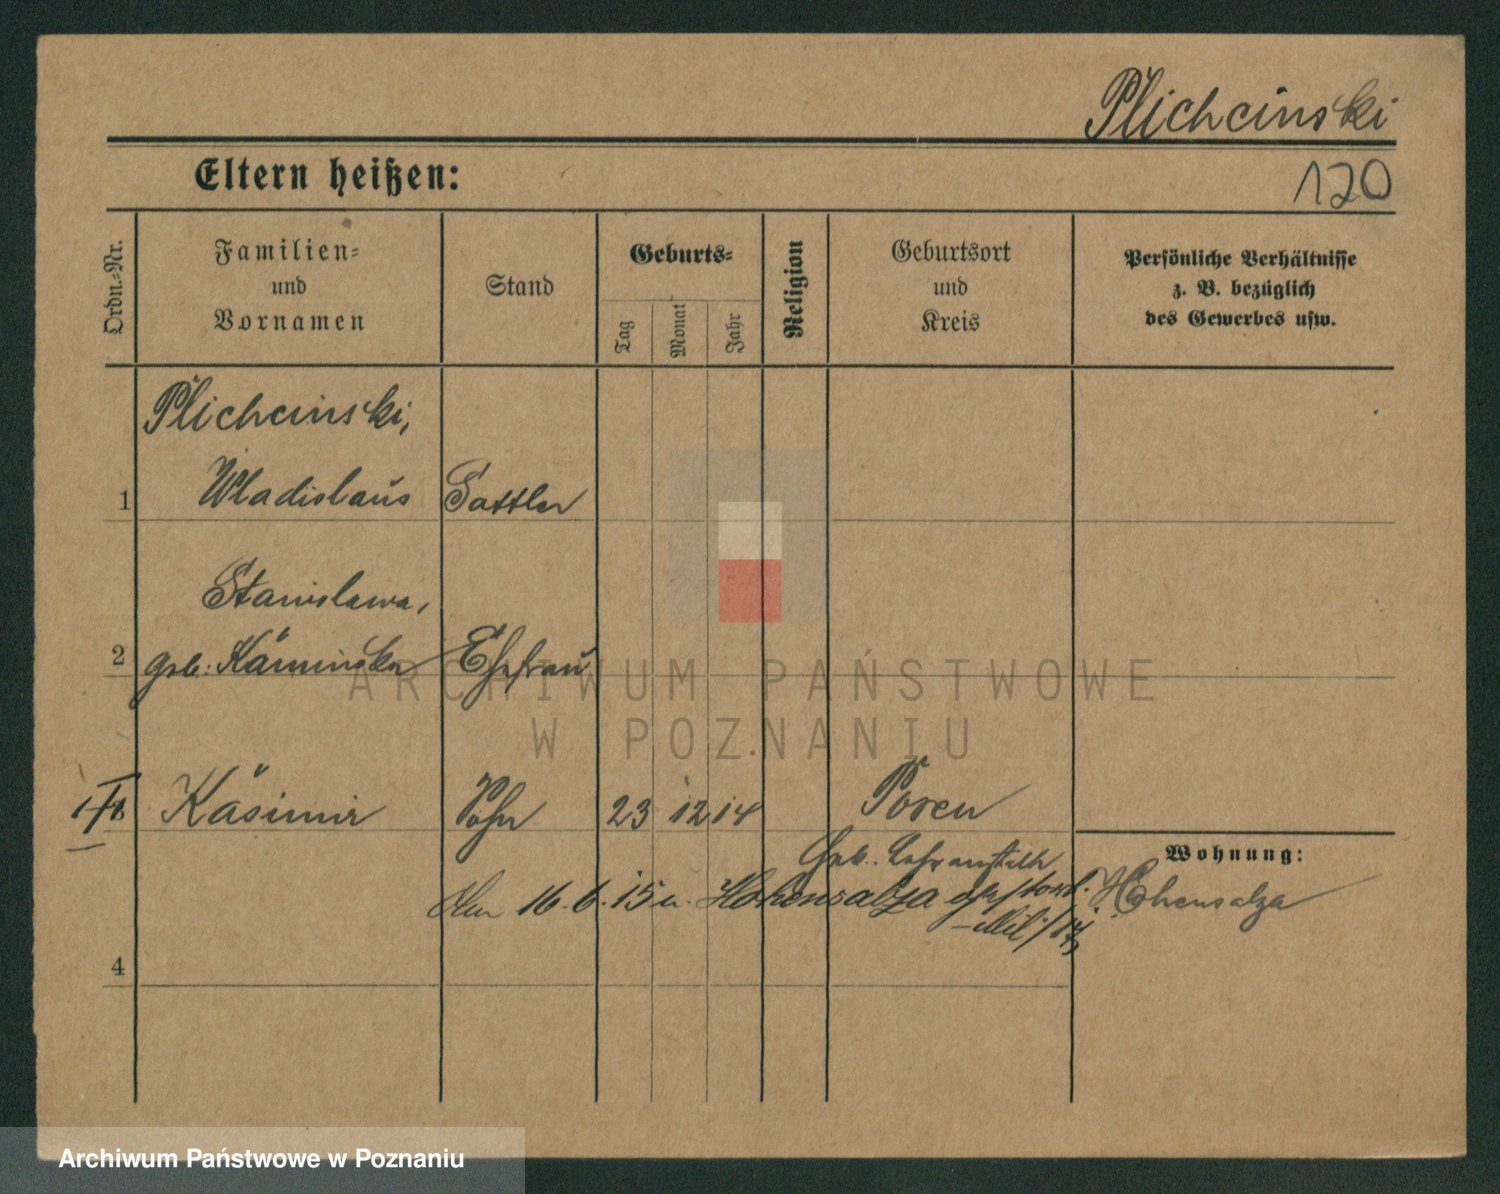 Plichcinski
Eltern heißen:
120
Ordn.-Nr.
Familien-
und
Vornamen
Stand
Geburts-
Tag
Monat
Jahr
Religion
Geburtsort
und
Kreis
Persönliche Verhältnisse
z. B. bezüglich
des Gewerbes usw.
Plichcinski,
1 Wladislaus Sattler
Stanislawa,
2 geb: Kaminska Ehefrau
Kasimir Sohn 23 12 14 Posen
Geb.
16. 6. 15 Hohensalza gestorb.
Wohnung:
Hohensalza
4
ARCHIWUM PAŃSTWOWE
W POZNANIU
Archiwum Państwowe w Poznaniu